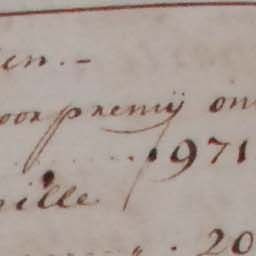 en.-
oor premij on
1971
ille
20